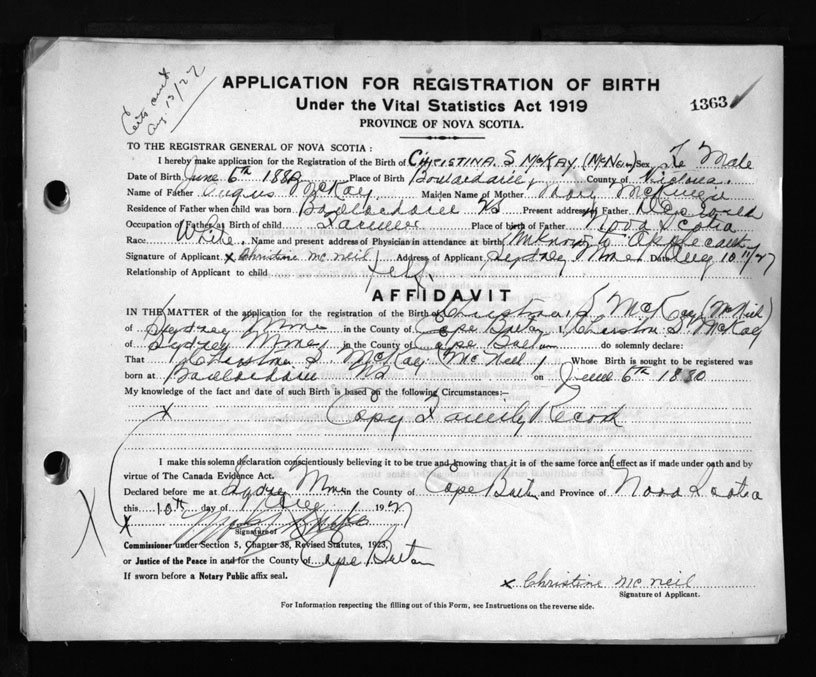 Certs sent
Aug 13/27
APPLICATION FOR REGISTRATION OF BIRTH
Under the Vital Statistics Act 1919
1363
PROVINCE OF NOVA SCOTIA.
TO THE REGISTRAR GENERAL OF NOVA SCOTIA :
I hereby make application for the Registration of the Birth of CHRISTINA S McKAY (McNeil) Sex Fe Male
Date of Birth June 6th 1880 Place of Birth Boulardarie, County of Victoria.
Name of Father Angus McKay Maiden Name of Mother Mary
Residence of Father when child was born NS Present address of Father Deceased
Occupation of Father at Birth of child Farmer Place of birth of Father Nova Scotia
Race White. Name and present address of Physician in attendance at birth Unknown to Applicant
Signature of Applicant x Christine McNeil Address of Applicant Sydney Mines Date Aug 10th/27
Relationship of Applicant to child self.
AFFIDAVIT
IN THE MATTER of the application for the registration of the Birth of Christina S McKay (McNeil)
of Sydney Mines in the County of Cape Breton I, Christina S McKay
of Sydney Mines in the County of Cape Breton do solemnly declare:
That Christina S. McKay (McNeil) Whose Birth is sought to be registered was
born at NS on June 6th 1880
My knowledge of the fact and date of such Birth is based on the following Circumstances:-
x Copy Family Record
I make this solemn declaration conscientiously believing it to be true and knowing that it is of the same force and effect as if made under oath and by
virtue of The Canada Evidence Act.
Declared before me at Sydney Mines in the County of Cape Breton and Province of Nova Scotia
this 10th day of Aug 1927
x
Signature of
Commissioner under Section 5, Chapter 38, Revised Statutes, 1923,
or Justice of the Peace in and for the County of Cape Breton
If sworn before a Notary Public affix seal.
x Christine McNeil
Signature of Applicant.
For Information respecting the filling out of this Form, see Instructions on the reverse side.